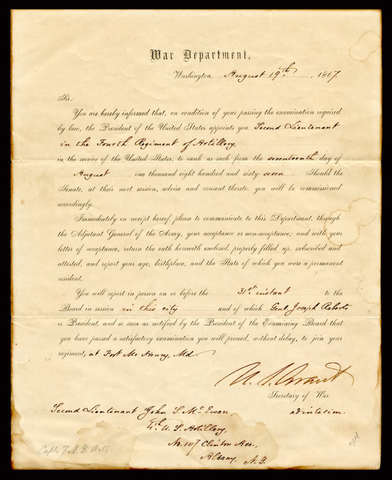 War Department,
Washington, August 19th, 1867
Sir:
You are hereby informed that, on condition of your passing the examination required
by law, the President of the United States appoints you Second Lieutenant
in the Fourth Regiment of Artillery,
in the service of the United States, to rank as such from the seventeenth day of
August one thousand eight hundred and sixty seven. Should the
Senate, at their next session, advise and consent thereto, you will be commissioned
accordingly.
Immediately on receipt hereof, please to communicate to this Department, through
the Adjutant General of the Army, your acceptance or non-acceptance; and with your
letter of acceptance, return the oath herewith enclosed, properly filled up, subscribed and
attested, and report your age, birthplace, and the State of which you were a permanent
resident.
You will report in person on or before the 31st instant to the
Board in session in this city and of which Genl. Joseph Roberts
is President, and as soon as notified by the President of the Examining Board that
you have passed a satisfactory examination you will proceed, without delay, to join your
regiment, at Fort McHenry, Md.
U. S. Grant
Secretary of War
ad interim.
Second Lieutenant John S. McEwan
4th U. S. Artillery,
No. 107 Clinton Ave.
Albany N.Y.